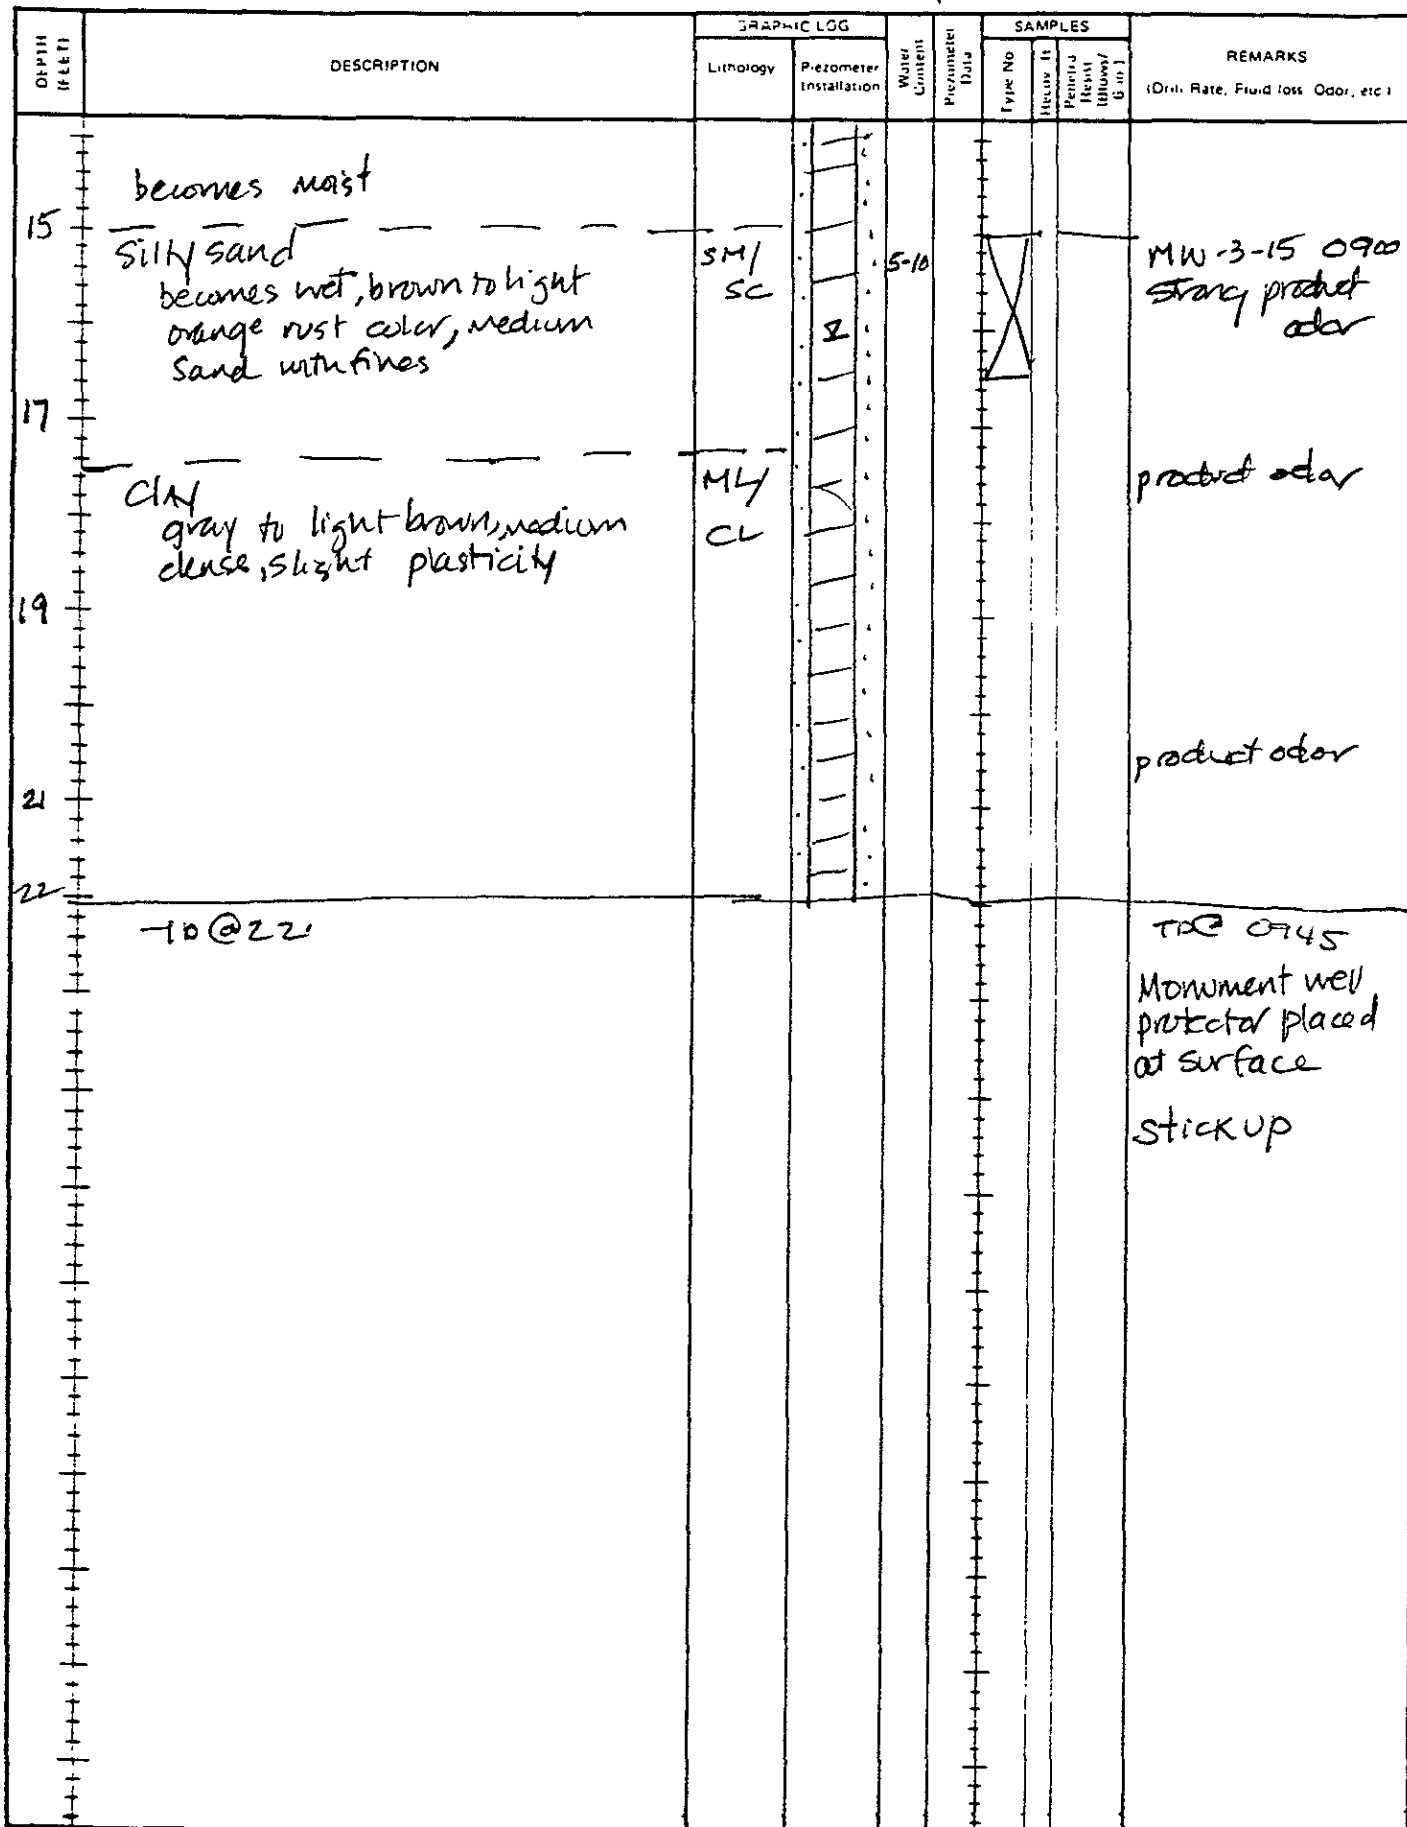 GRAPHIC LOG
SAMPLES
DEPTH (FEET)
DESCRIPTION
Lithology
Piezometer Installation
Water Content
Piezometer Data
Type No
Recov. ft
Penetra Resist (Blows/ 6 in)
REMARKS
(Drill Rate, Fluid loss Odor, etc)
becomes moist
15
Silty sand
becomes wet, brown to light
orange rust color, medium
Sand with fines
SM/
SC
5-10
MW-3-15 0900
strong product
odor
17
Clay
gray to light brown, medium
dense, slight plasticity
ML/
CL
product odor
19
product odor
21
22
TD @ 22'
TD @ 0945
Monument well
protector placed
at surface
Stick up